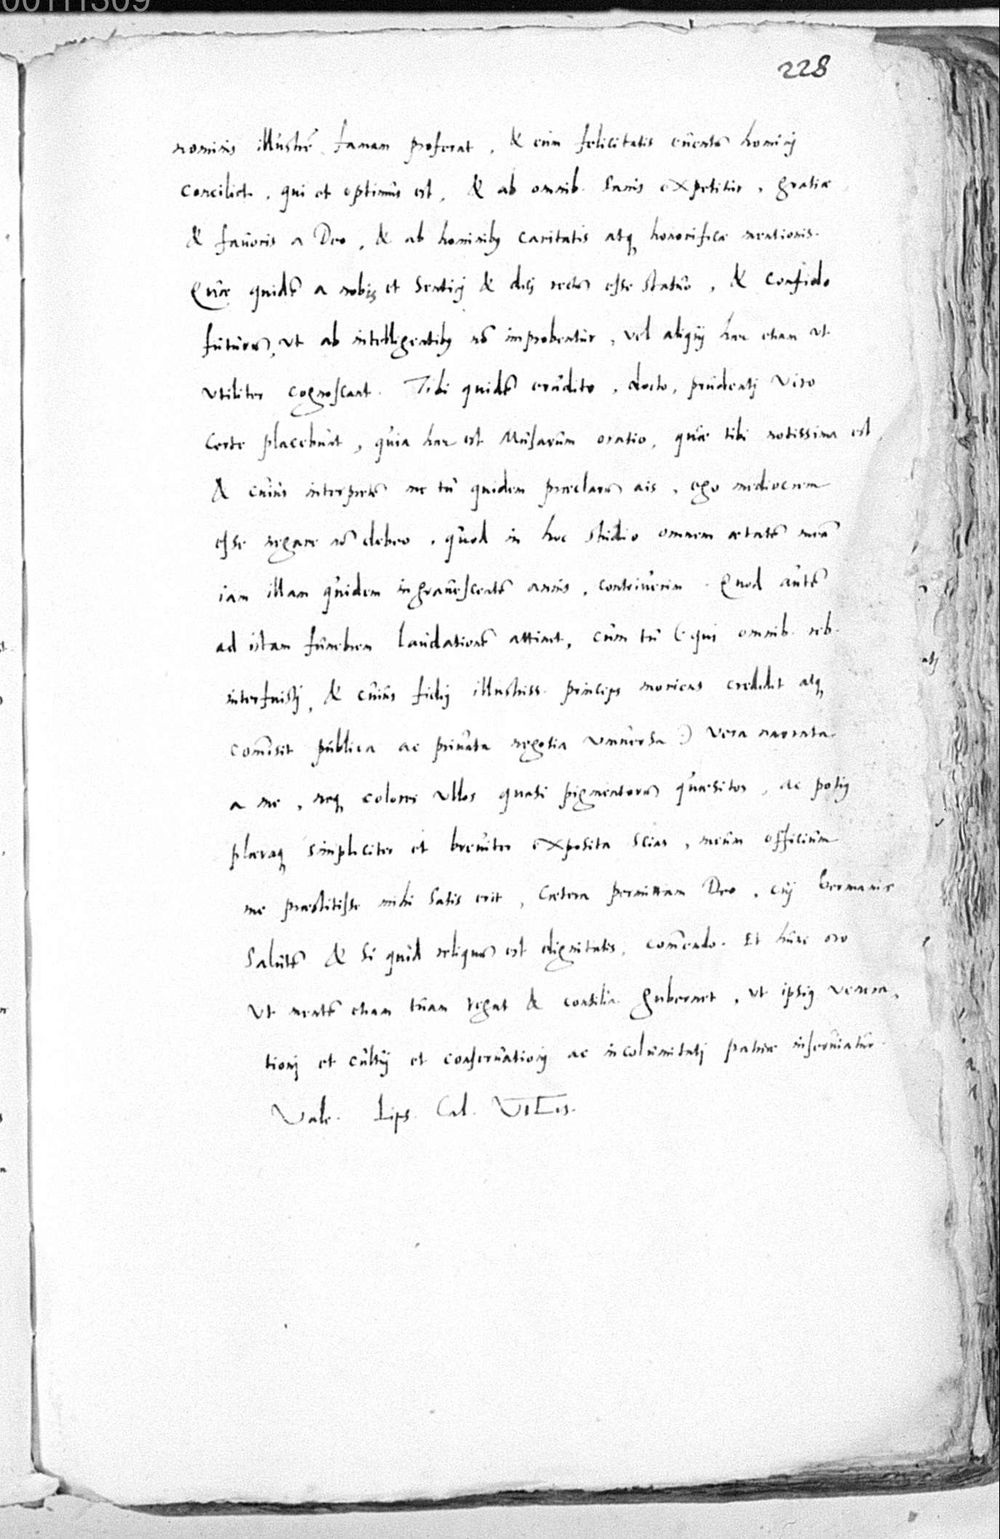 00111309
228
nominis illustrē famam proferat, & eum felicitatis euentū homini
conciliet, qui et optimus est, & ab omnib. sanis expetitur, gratiae
& fauoris a Deo, & ab hominibq caritatis atq honorificae mentionis.
Quae quidē a nobis et sentiri & dici recte esse statuo, & confido
futurū, ut ab intelligentibq nō improbentur, vel aliqui haec etiam ut
utiliter cognoscant. Tibi quidē erudito, docto, prudenti viro
certe placebunt, quia haec est Musarum oratio, quae tibi notissima est,
& cuius interpretē me tu quidem praeclarū ais, ego mediocrem
esse negare nō debeo, quod in hoc studio omnem aetatē meā
iam illam quidem ingrauescentē annis, contriuerim. Quod autē
ad istam funebrem laudationē attinet, cum tu (qui omnib. reb.
interfuisti, & cuius fidei illustriss. princeps moriens credidit atq
com̄isit publica ac priuata negotia uniuersa) vera narrata
a me, neq colores ullos quasi pigmentorū quaesitos, ac potiq
pleraq simpliciter et breuiter exposita scias, meum officium
me praestitisse mihi satis erit, caetera permittam Deo, cui Germaniae
salutē & si quid reliquū est dignitatis, com̄endo. Et hunc oro
ut mentē etiam tuam regat & consilia gubernet, ut ipsiq venera,
tioni et cultui et conseruationi ac incolumitati patriae inseruiatur.
Vale. Lips. Cal.